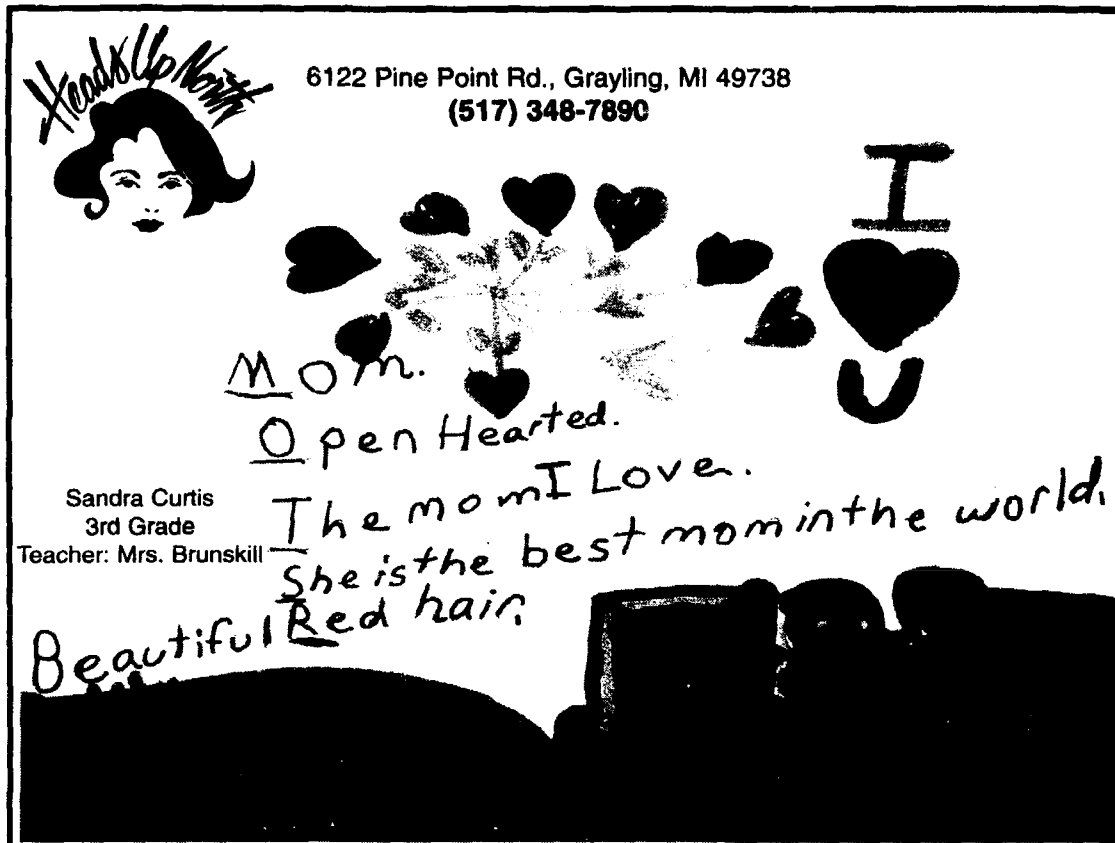 Heads Up North
6122 Pine Point Rd., Grayling, MI 49738
(517) 348-7890
I
U
Mom.
Open Hearted.
The mom I Love.
She is the best mom in the world.
Beautiful Red hair.
Sandra Curtis
3rd Grade
Teacher: Mrs. Brunskill